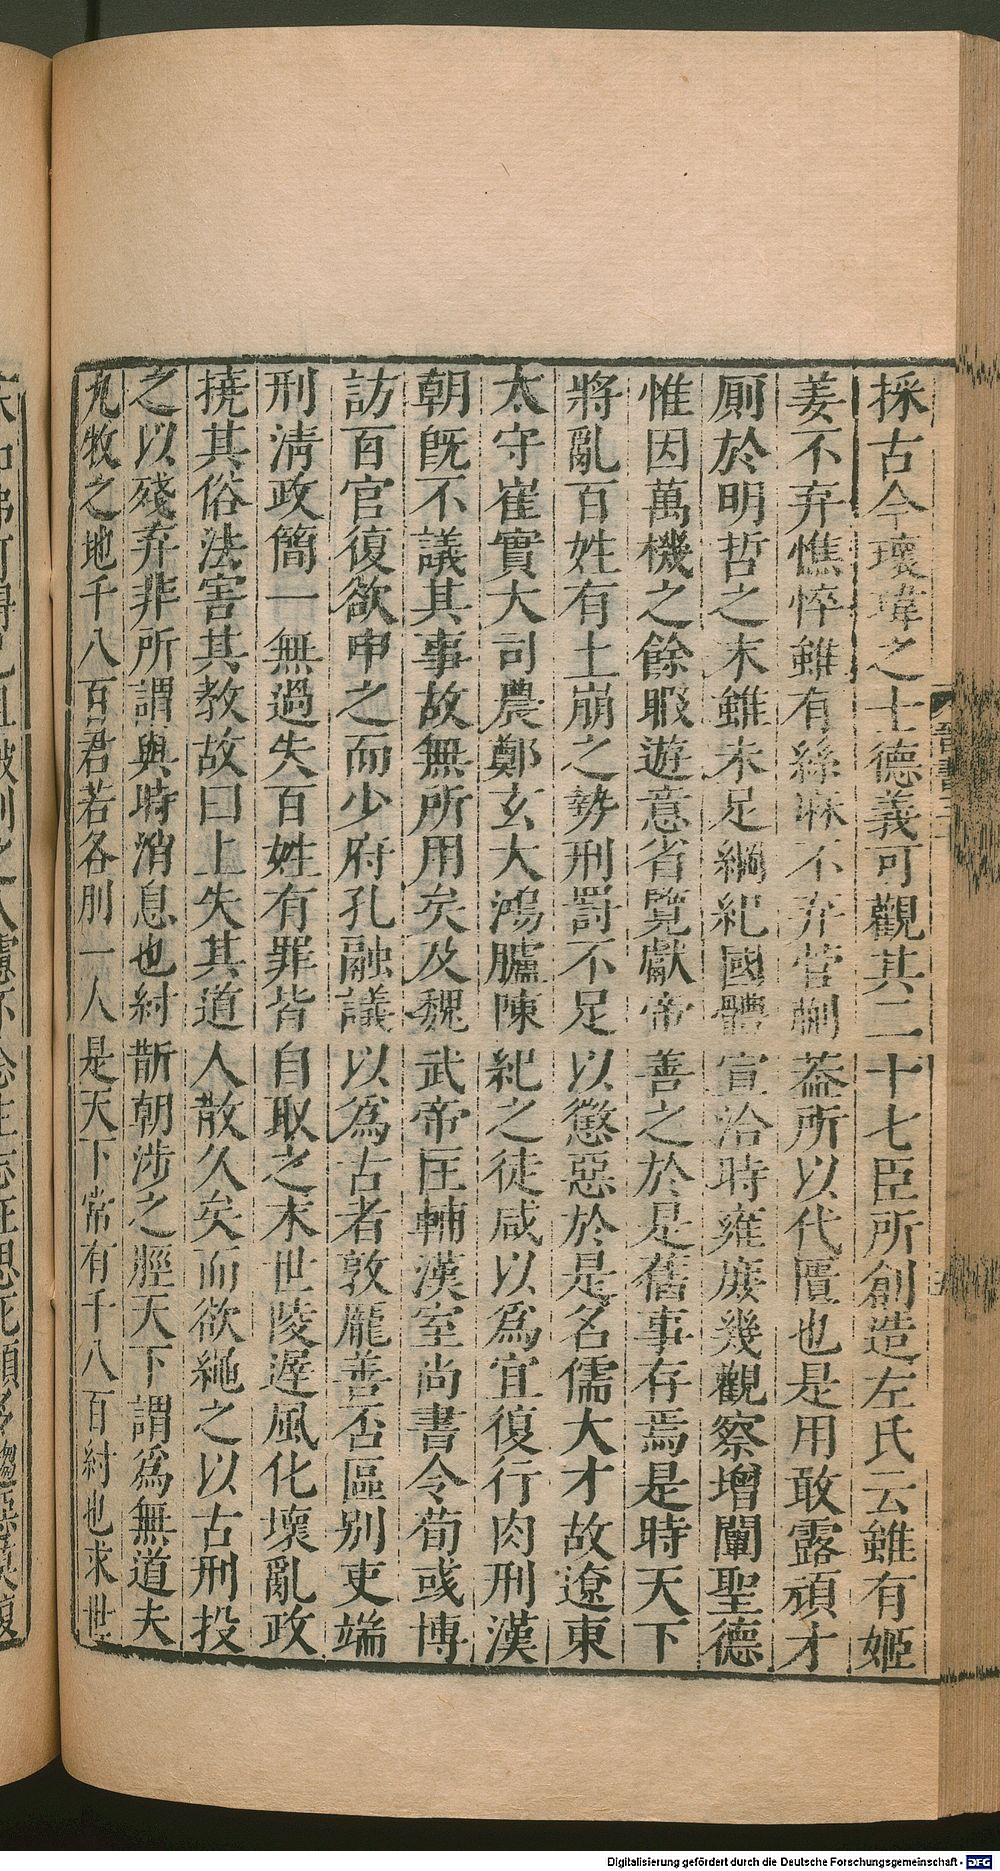 採古今瓌瑋之士德義可觀其二十七臣所創造左氏云雖有姬
姜不弃憔悴雖有絲麻不弃菅蒯葢所以代匱也是用敢露頑才
厠於明哲之末雖未足綱紀國體宣洽時雍庶幾觀察增闡聖德
惟因萬機之餘暇遊意省覽獻帝善之於是舊事存焉是時天下
將亂百姓有土崩之勢刑罰不足以懲惡於是名儒大才故遼東
太守崔實大司農鄭玄大鴻臚陳紀之徒咸以爲宜復行肉刑漢
朝既不議其事故無所用矣及魏武帝匡輔漢室尚書令荀彧博
訪百官復欲申之而少府孔融議以爲古者敦厖善否區别吏端
刑清政簡一無過失百姓有罪皆自取之末世陵遲風化壞亂政
撓其俗法害其教故曰上失其道人散久矣而欲繩之以古刑投
之以殘弃非所謂與時消息也紂斮朝涉之脛天下謂爲無道夫
九牧之地千八百君若各刖一人是天下常有千八百紂也求世
Digitalisierung gefördert durch die Deutsche Forschungsgemeinschaft - DFG